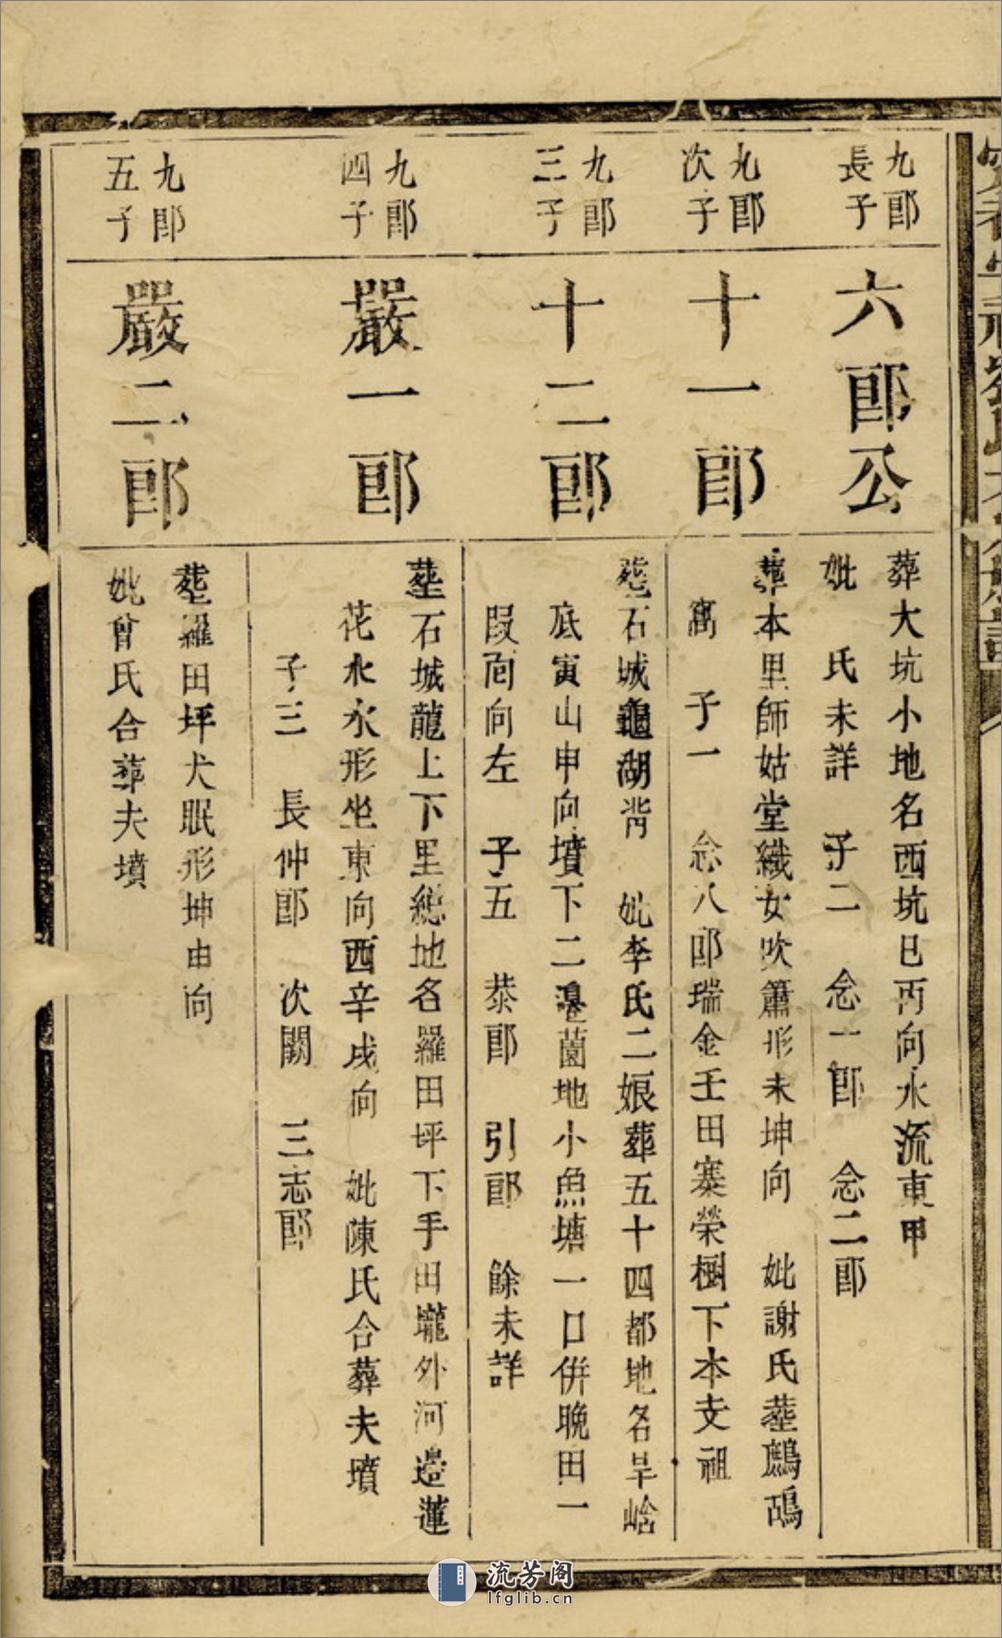 九郎
長子
六郎公
葬大坑小地名西坑巳丙向水流東甲
妣 氏未詳 子二 念一郎 念二郎
九郎
次子
十一郎
葬本里師姑堂織女吹簫形未坤向 妣謝氏塟鷓鴣
窩 子一 念八郎瑞金壬田寨榮樹下本支祖
九郎
三子
十二郎
塟石城龜湖背 妣李氏二娘葬五十四都地名旱峆
底寅山申向墳下二邉薗地小魚塘一口併晚田一
叚向左 子五 恭郎 引郎 餘未詳
九郎
四子
嚴一郎
塟石城龍上下里総地名羅田坪下手田壠外河邉蓮
花水水形坐東向西辛戌向 妣陳氏合葬夫墳
子三 長仲郎 次關 三志郎
九郎
五子
嚴二郎
塟羅田坪犬眠形坤由向
妣曾氏合葬夫墳
流芳阁
lfglib.cn